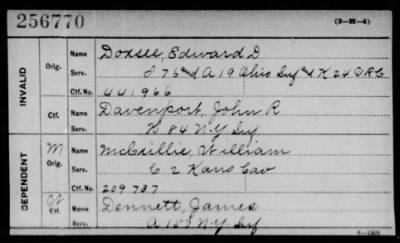 256770
(3-2-4)
INVALID
Orig.
Name Doxsee, Edward D
Serv. I 76 and A 19 Ohio Inf & K 24 V R C
Ctf. No. 441966
Ctf.
Name Davenport, John R
Serv. K 84 N.Y. Inf
DEPENDENT
M Orig.
Name McCrillie, William
Serv. C 2 Kans Cav
Ctf. No. 209737
Ctf.
Name Dennett, James
Serv. A 151 N.Y. Inf